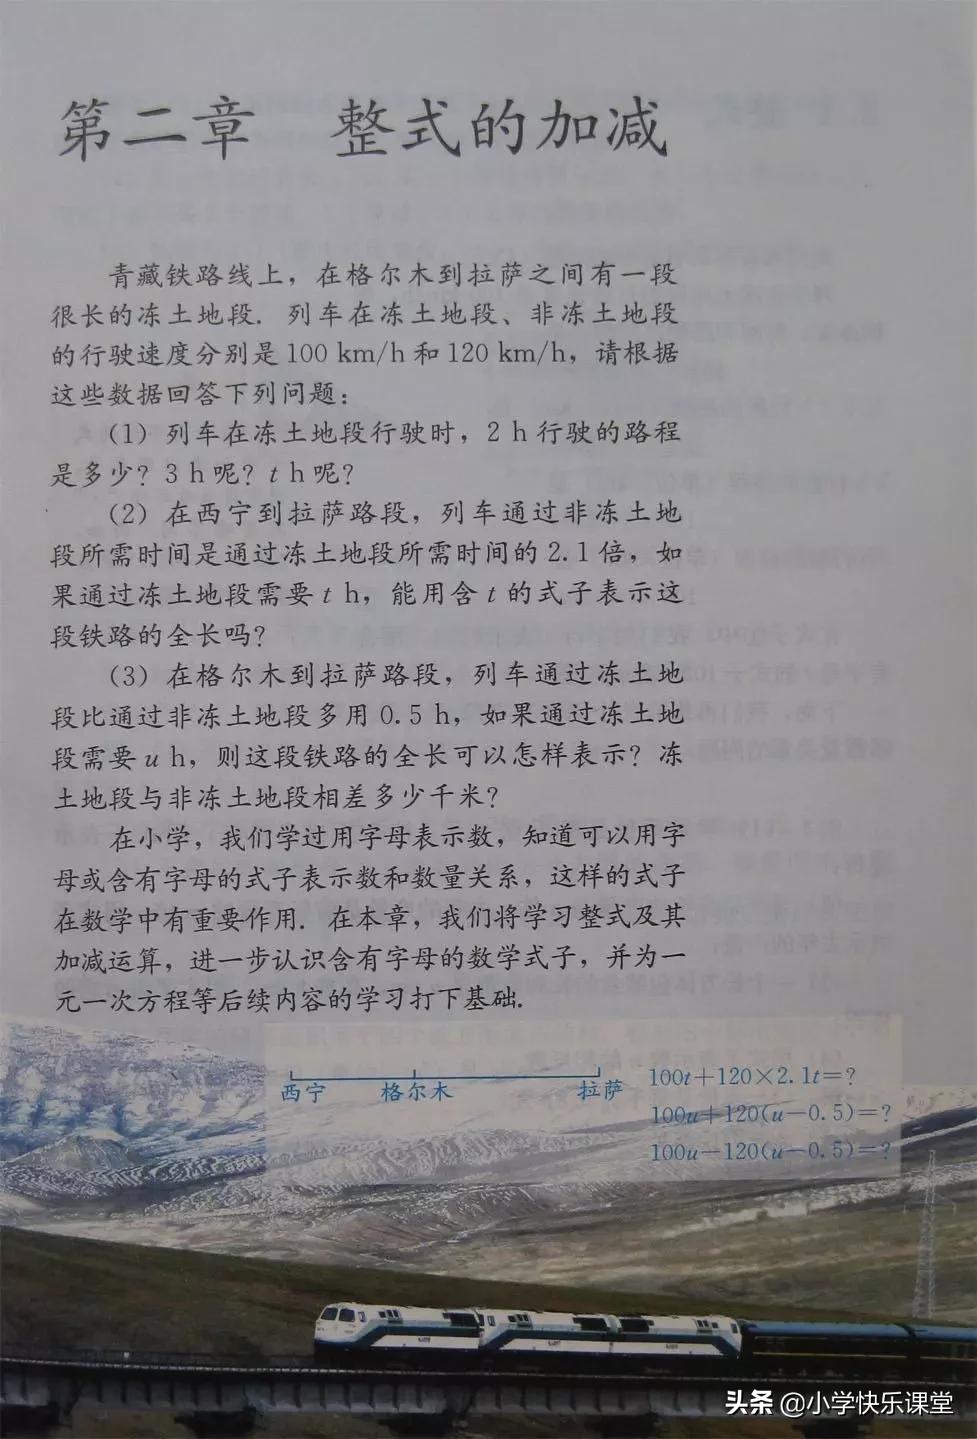 第二章 整式的加减
青藏铁路线上，在格尔木到拉萨之间有一段
很长的冻土地段．列车在冻土地段、非冻土地段
的行驶速度分别是 100 km/h 和 120 km/h，请根据
这些数据回答下列问题：
(1) 列车在冻土地段行驶时，2 h 行驶的路程
是多少？3 h 呢？t h 呢？
(2) 在西宁到拉萨路段，列车通过非冻土地
段所需时间是通过冻土地段所需时间的 2.1 倍，如
果通过冻土地段需要 t h，能用含 t 的式子表示这
段铁路的全长吗？
(3) 在格尔木到拉萨路段，列车通过冻土地
段比通过非冻土地段多用 0.5 h，如果通过冻土地
段需要 u h，则这段铁路的全长可以怎样表示？冻
土地段与非冻土地段相差多少千米？
在小学，我们学过用字母表示数，知道可以用字
母或含有字母的式子表示数和数量关系，这样的式子
在数学中有重要作用．在本章，我们将学习整式及其
加减运算，进一步认识含有字母的数学式子，并为一
元一次方程等后续内容的学习打下基础．
西宁 格尔木 拉萨
100t+120×2.1t=?
100u+120(u−0.5)=?
100u−120(u−0.5)=?
头条 @小学快乐课堂